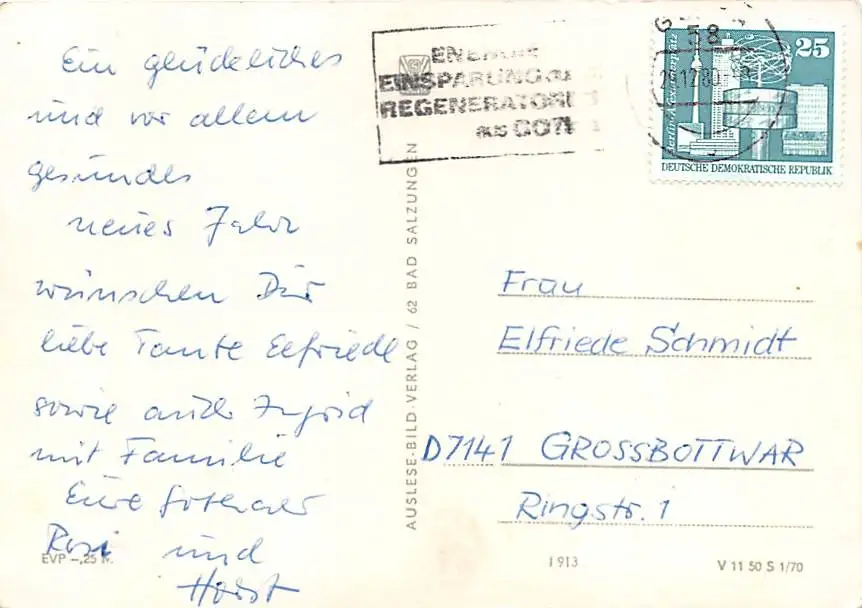 Ein glückliches
und vor allem
gesundes
neues Jahr
wünschen Dir
liebe Tante Elfriede
sowie auch Ingrid
mit Familie
Eure Gothaer
Rosi und
Horst
EVP –,25 M.
AUSLESE-BILD-VERLAG / 62 BAD SALZUNGEN
ENERGIE
EINSPARUNG
REGENERATOR
aus GOTH
58
29.12.80
25
DEUTSCHE DEMOKRATISCHE REPUBLIK
Frau
Elfriede Schmidt
D7141 GROSSBOTTWAR
Ringstr. 1
1 913
V 11 50 S 1/70